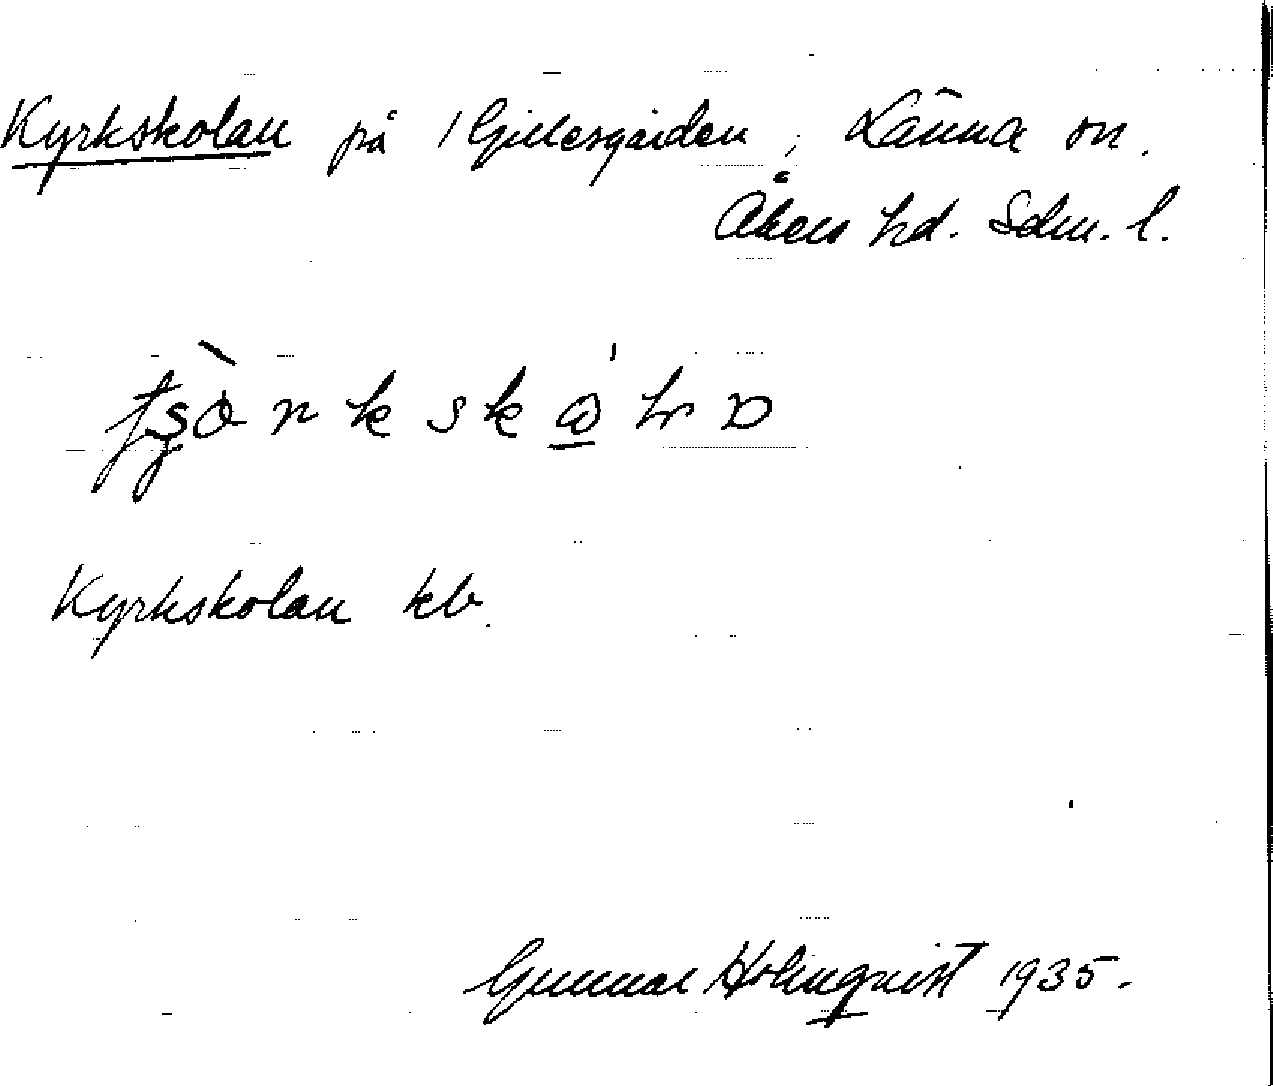 Kyrkskolan på 1 Gillesgården, Länna sn.
Åkers hd. Sdm. l.
Kyrkskolan kb.
Gunnar Holmqvist 1935.